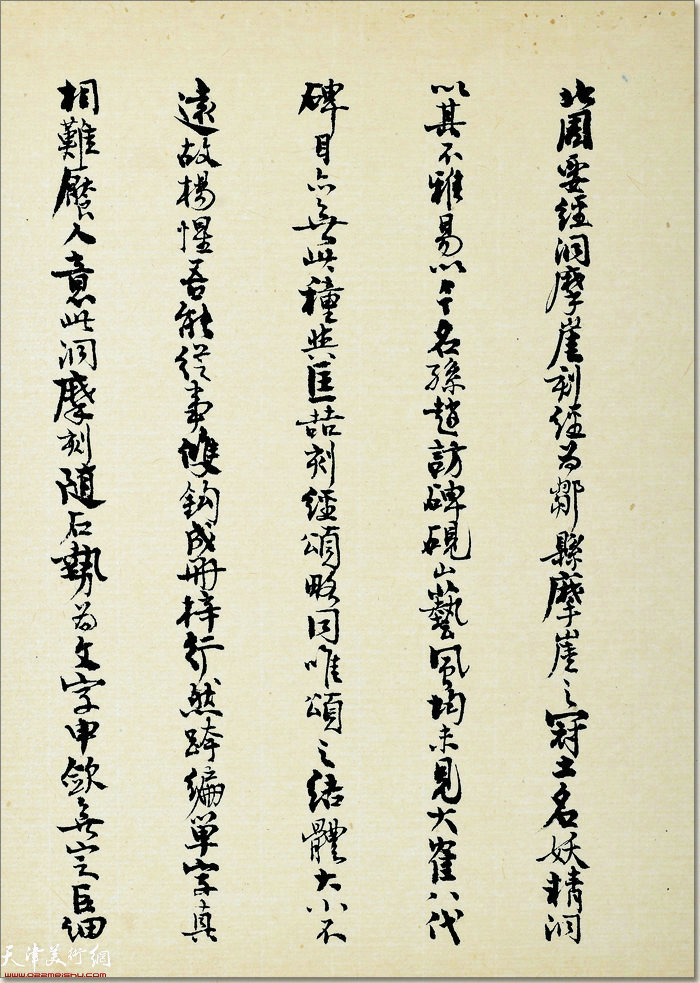 北周要經洞摩崖刻經为鄒縣摩崖之冠土名妖精洞
以其不雅易以今名孫趙訪碑硯山藝風均未見大崔八代
碑目亦無此種與匡喆刻經頌略同唯頌之結體大小不
遠故楊惺吾能從事雙鉤成冊梓行然跨編單字真
相難饜人意此洞摩刻随石勢为文字申歛無定巨細
天津美術網
www.022meishu.com